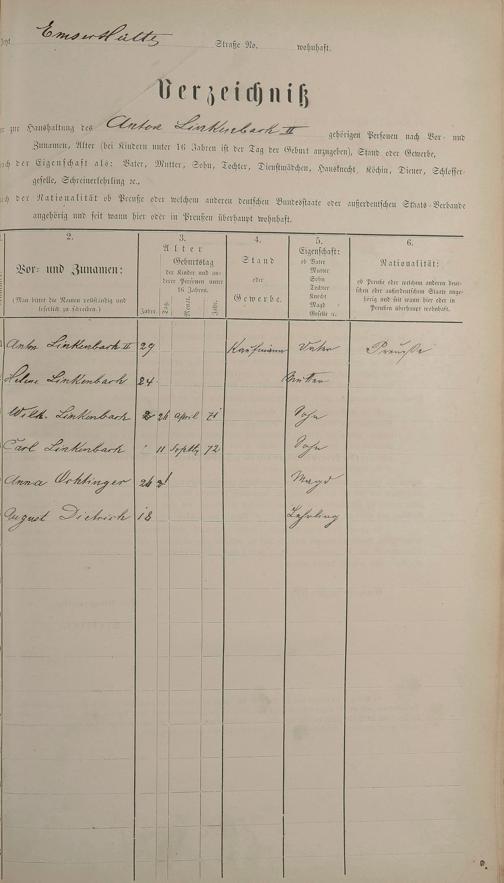 Emserhütte Straße No. wohnhaft.
Verzeichniß
zur Haushaltung des Anton Linkenbach II gehörigen Personen nach Vor- und
Zunamen, Alter (bei Kindern unter 16 Jahren ist der Tag der Geburt anzugeben), Stand oder Gewerbe,
nach der Eigenschaft als: Vater, Mutter, Sohn, Tochter, Dienstmädchen, Hausknecht, Köchin, Diener, Schlosser-
geselle, Schreinerlehrling ꝛc.,
nach der Nationalität ob Preuße oder welchem anderen deutschen Bundesstaate oder außerdeutschen Staats-Verbande
angehörig und seit wann hier oder in Preußen überhaupt wohnhaft.
2. 3. 4. 5. 6.
Vor- und Zunamen:
(Man bittet die Namen vollständig und
leserlich zu schreiben.)
Alter
Geburtstag
der Kinder und an-
derer Personen unter
16 Jahren.
Jahre. Tag. Monat. Jahr.
Stand
oder
Gewerbe.
Eigenschaft:
ob Vater
Mutter
Sohn
Tochter
Knecht
Magd
Geselle ꝛc.
Nationalität:
ob Preuße oder welchem anderen deut-
schen oder außerdeutschen Staate ange-
hörig und seit wann hier oder in
Preußen überhaupt wohnhaft.
Anton Linkenbach II 29 Kaufmann Vater Preuße
Helene Linkenbach 24 Mutter
Wilh. Linkenbach 2 26 April 71 Sohn
Carl Linkenbach 11 Septb 72 Sohn
Anna Ochtinger 26 Magd
August Dietrich 18 Lehrling